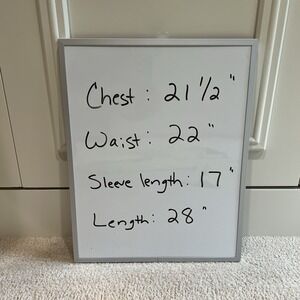 Chest: 21 1/2"
Waist: 22"
Sleeve length: 17"
Length: 28"